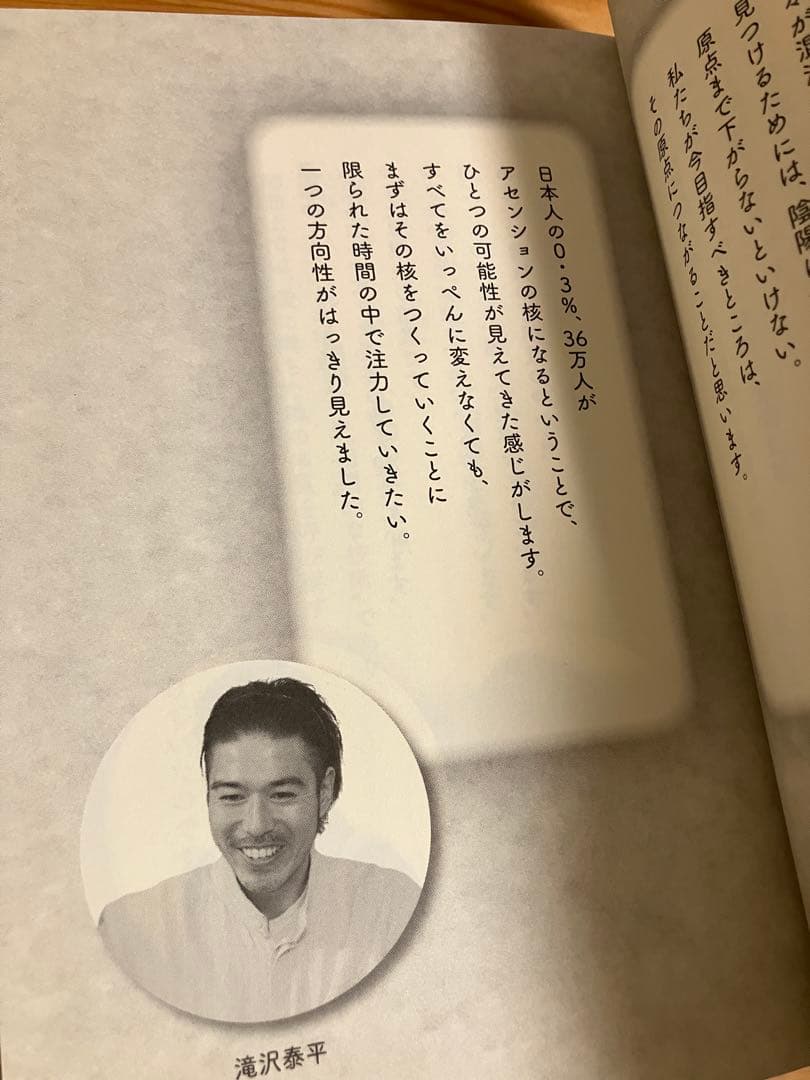 見つけるためには、陰陽
原点まで下がらないといけない。
私たちが今目指すべきところは、
その原点につながることだと思います。
日本人の0.3%、36万人が
アセンションの核になるということで、
ひとつの可能性が見えてきた感じがします。
すべてをいっぺんに変えなくても、
まずはその核をつくっていくことに
限られた時間の中で注力していきたい。
一つの方向性がはっきり見えました。
滝沢泰平